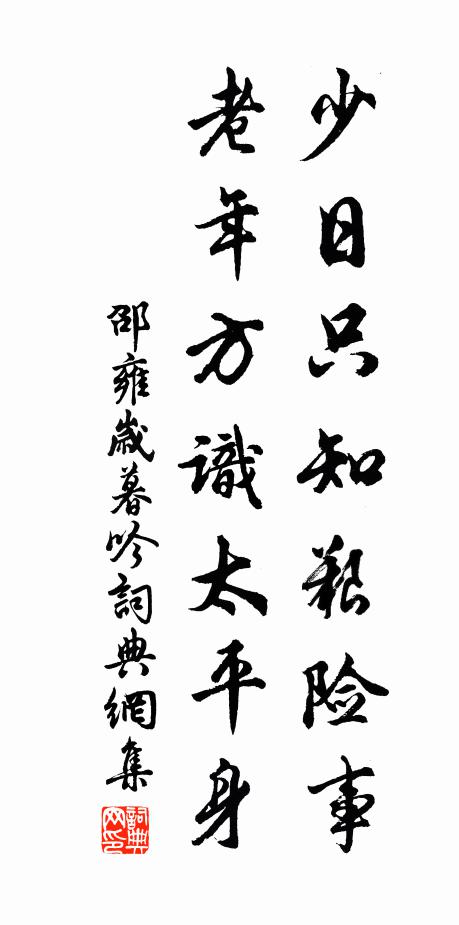 少日只知艱险事
老年方識太平身
邵雍歲暮吟詞典網集
詞典網印